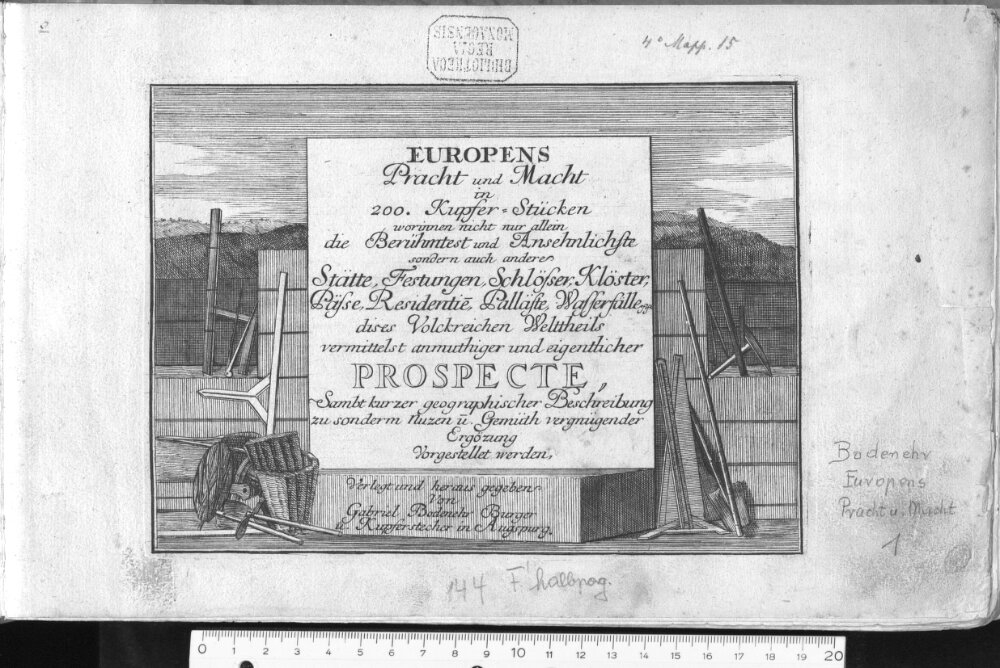 2
BIBLIOTHECA
REGIA
MONACENSIS
4° Mapp. 15
1
EUROPENS
Pracht und Macht
in
200. Kupfer=Stücken
worinnen nicht nur allein
die Berühmtest und Ansehnlichste
sondern auch andere
Stätte, Festungen, Schlösser, Klöster,
Pässe, Residentiē, Palläste, Wasserfälle
dises Volckreichen Welttheils
vermittelst anmuthiger und eigentlicher
PROSPECTE,
Sambt kurzer geographischer Beschreibung
zu sonderm Nuzen ū. Gemüth vergnügender
Ergözung
Vorgestellet werden,
Verlegt und heraus gegeben
Von
Gabriel Bodenehr Burger
u. Kupferstecher in Augspurg.
Bodenehr
Europens
Pracht u. Macht
1
144 F' halbpag.
0 1 2 3 4 5 6 7 8 9 10 11 12 13 14 15 16 17 18 19 20